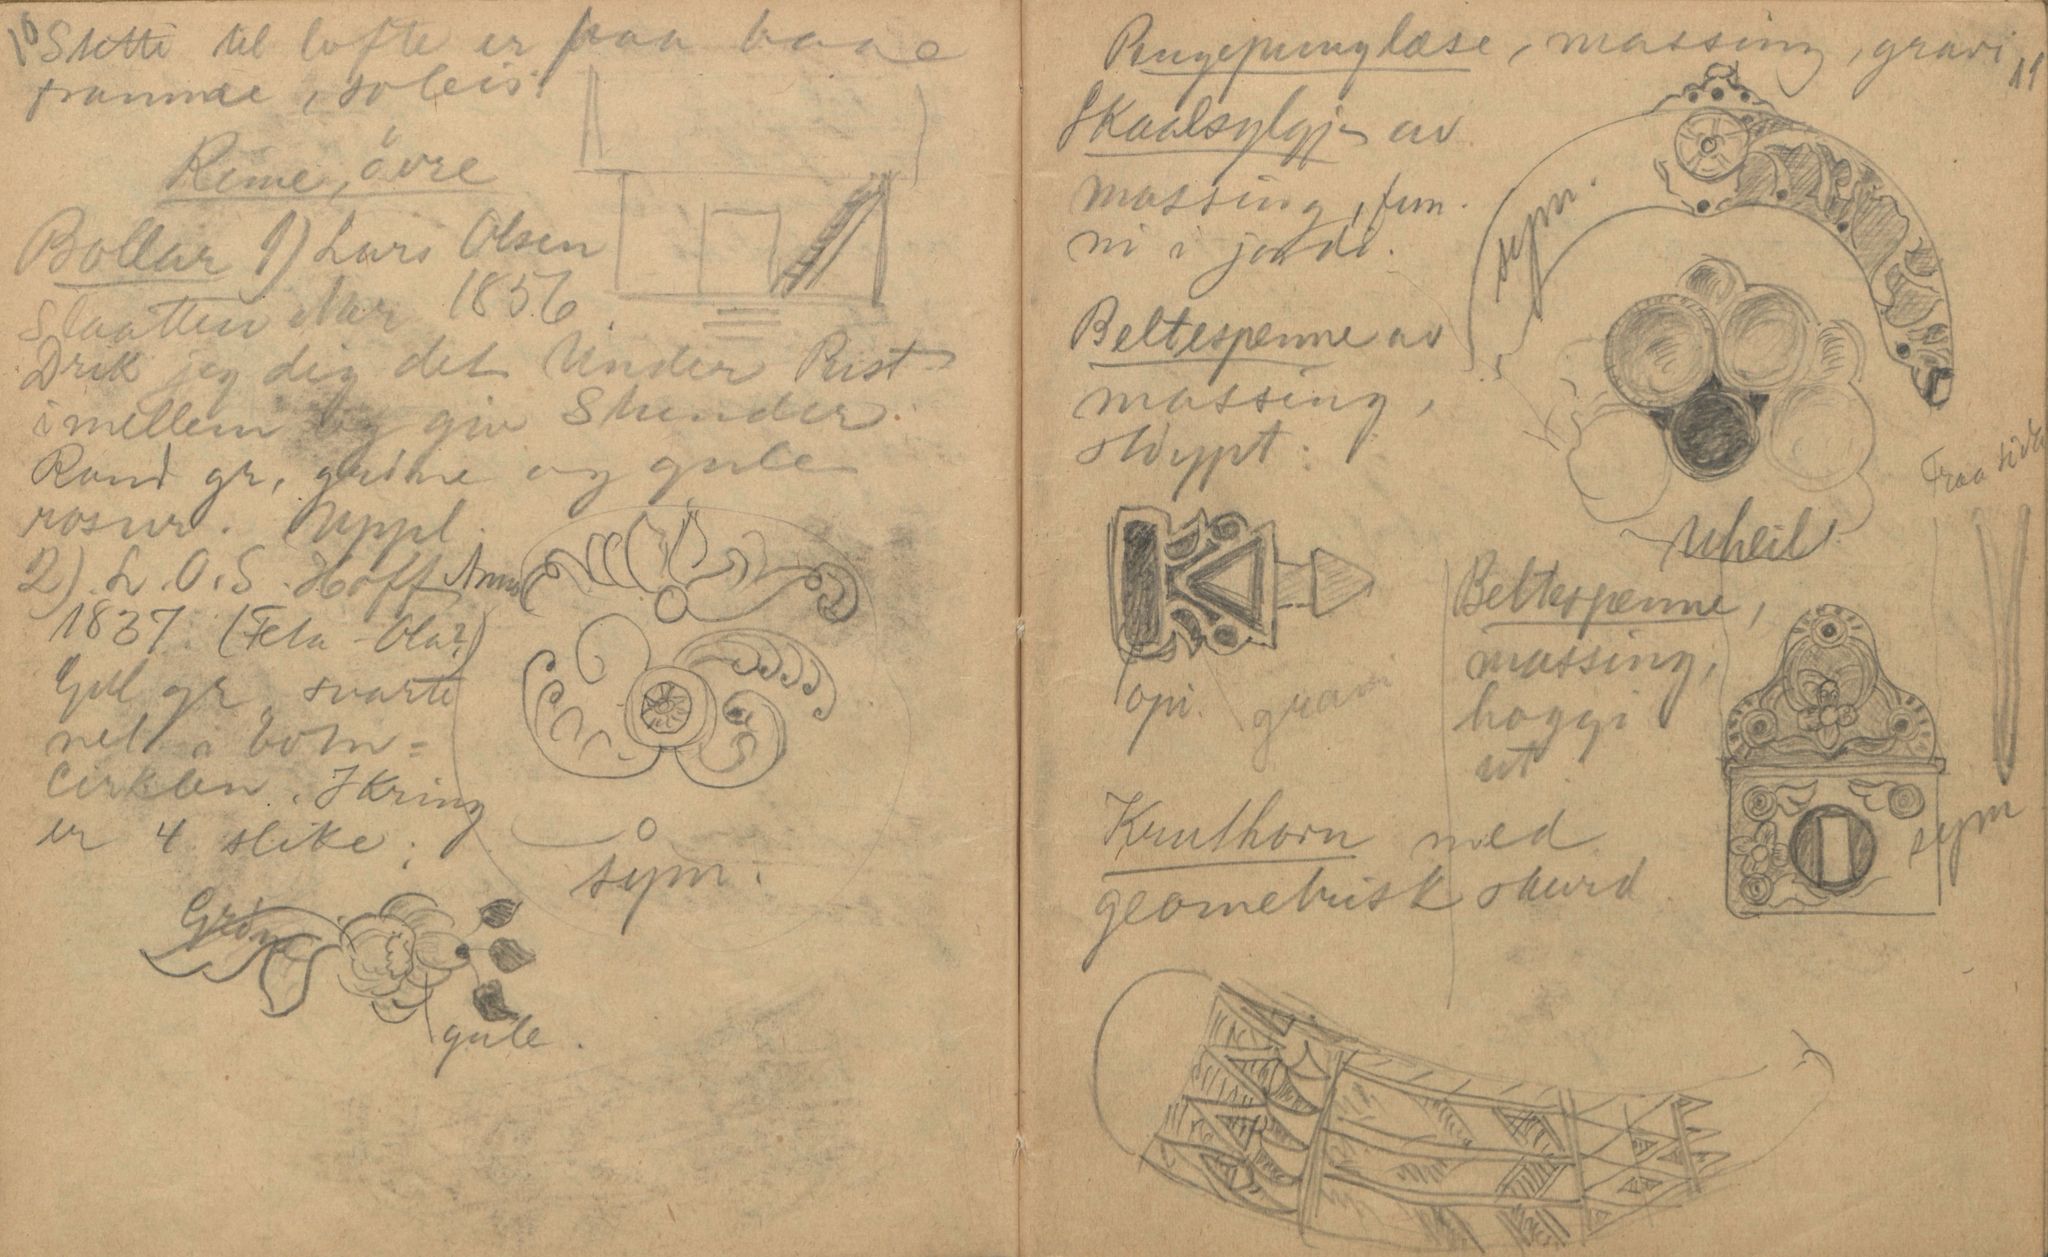 10
Stette til lofte er paa baae
frammae, soleis:
Rime, övre
Bollar 1) Lars Olsen
Slaatten Aar 1856
Drik jeg dig det Under Rist
imellem og giv Stunder.
Rand gr, gröne og gule
rosur. Uppl.
2) L. O. S. Hoff Anno
1837. (Fela-Ola?)
Gul gr, svarte
nell i botn-
cirklen. Ikring
er 4 slike:
sym.
Gröne
gule.
11
Pugepunglæse, massing, gravi
Skaalsylgje av
massing, fun-
ni i jordi.
sym.
Beltespenne av
massing,
stöypt:
Uheil
Fraa sida
opi.
grav
Beltespenne,
massing,
hoggi
ut
sym
Kruthorn med
geometrisk skurd